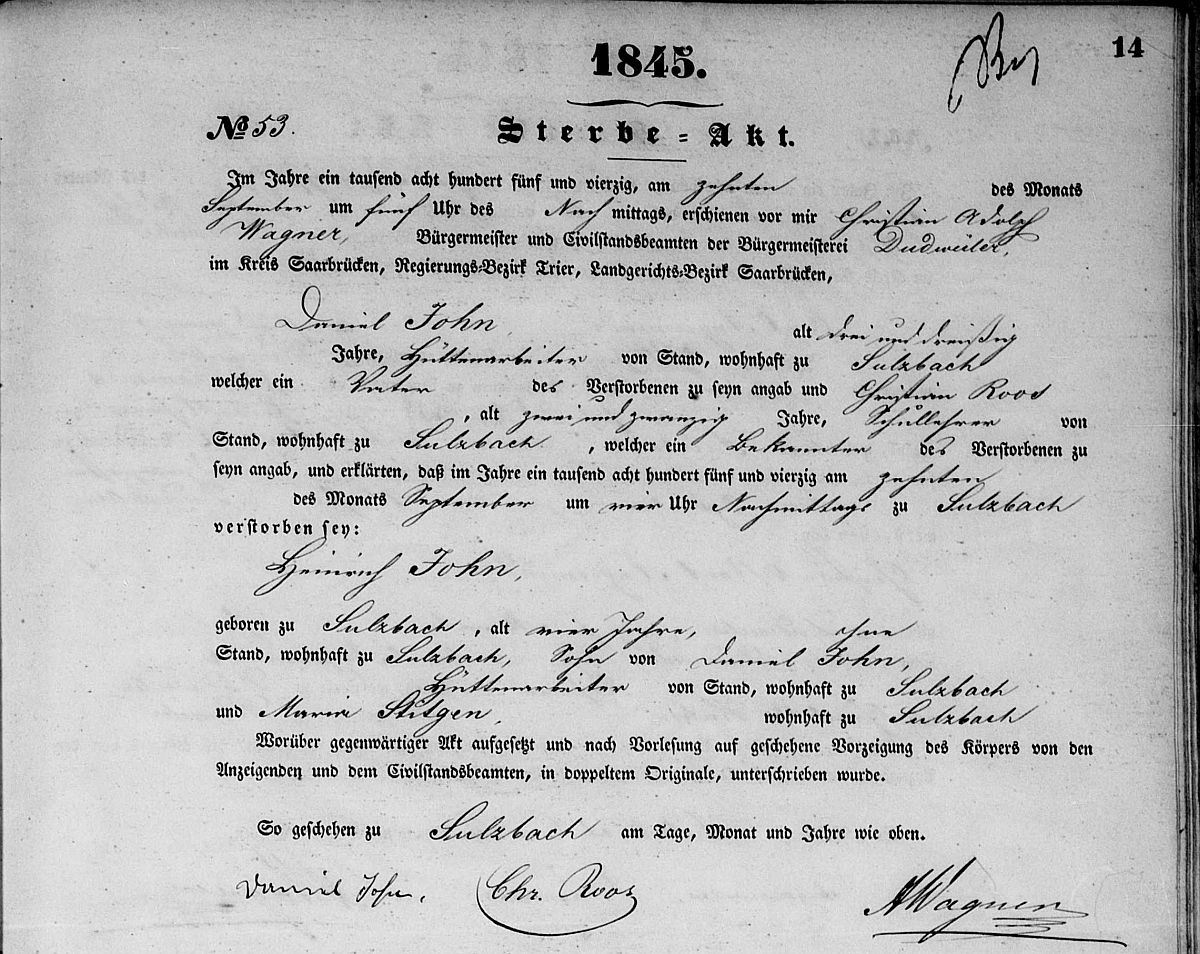 1845.
14
№ 53.
Sterbe-Akt.
Im Jahre ein tausend acht hundert fünf und vierzig, am zehnten des Monats
September um fünf Uhr des Nachmittags, erschienen vor mir Christian Adolph
Wagner, Bürgermeister und Civilstandsbeamten der Bürgermeisterei Dudweiler,
im Kreis Saarbrücken, Regierungs-Bezirk Trier, Landgerichts-Bezirk Saarbrücken,
Daniel John, alt drei und dreißig
Jahre, Hüttenarbeiter von Stand, wohnhaft zu Sulzbach
welcher ein Vater des Verstorbenen zu seyn angab und Christian Roos
, alt zwei und zwanzig Jahre, Schullehrer von
Stand, wohnhaft zu Sulzbach, welcher ein Bekannter des Verstorbenen zu
seyn angab, und erklärten, daß im Jahre ein tausend acht hundert fünf und vierzig am zehnten
des Monats September um vier Uhr Nachmittags zu Sulzbach
verstorben sey:
Heinrich John,
geboren zu Sulzbach, alt vier Jahre, ohne
Stand, wohnhaft zu Sulzbach, Sohn von Daniel John,
Hüttenarbeiter von Stand, wohnhaft zu Sulzbach
und Maria Stitgen, wohnhaft zu Sulzbach
Worüber gegenwärtiger Akt aufgesetzt und nach Vorlesung auf geschehene Vorzeigung des Körpers von den
Anzeigenden und dem Civilstandsbeamten, in doppeltem Originale, unterschrieben wurde.
So geschehen zu Sulzbach am Tage, Monat und Jahre wie oben.
Daniel John. Chr. Roos AWagner